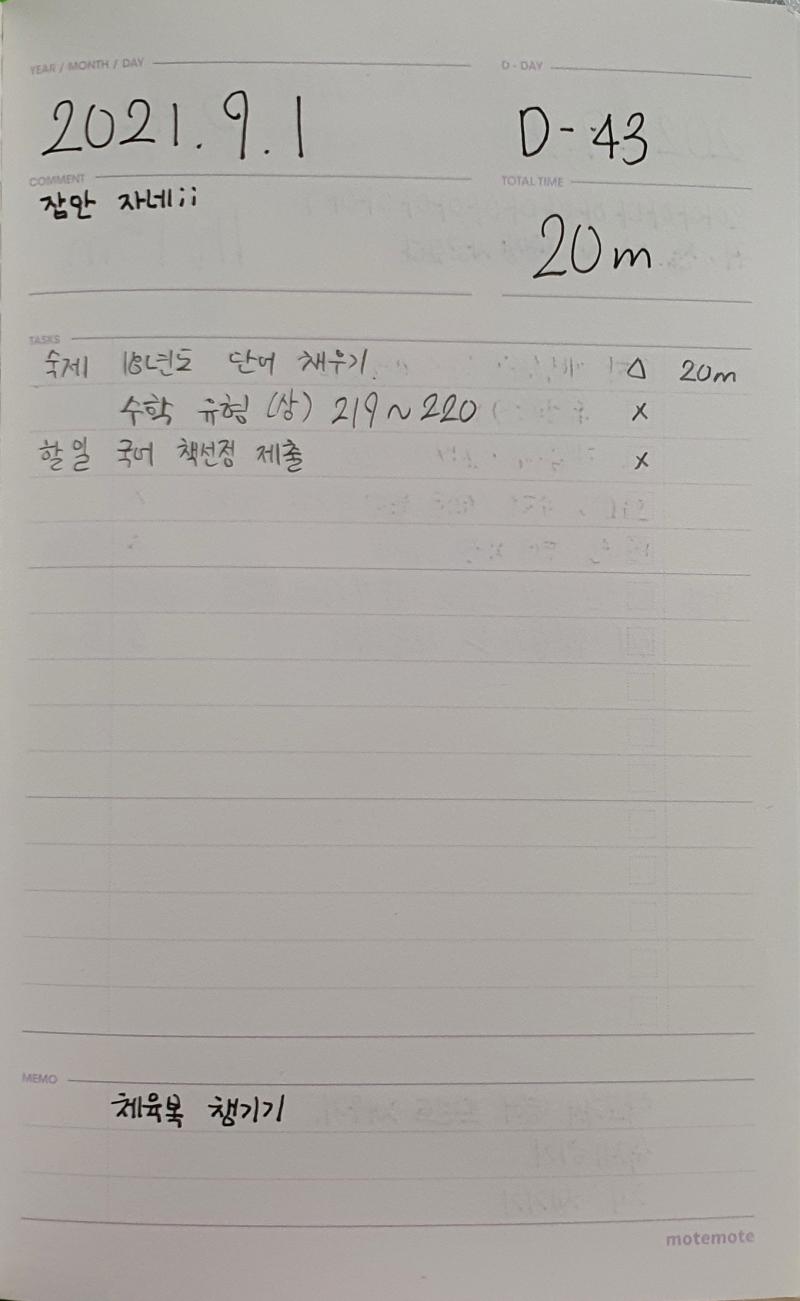 YEAR / MONTH / DAY
D - DAY
2021. 9. 1
D - 43
COMMENT
TOTAL TIME
잠안 자네ii
20m
TASKS
숙제 18년도 단어 채우기 △ 20m
수학 유형 (상) 219 ~ 220 x
할일 국어 책선정 제출 x
MEMO
체육복 챙기기
motemote